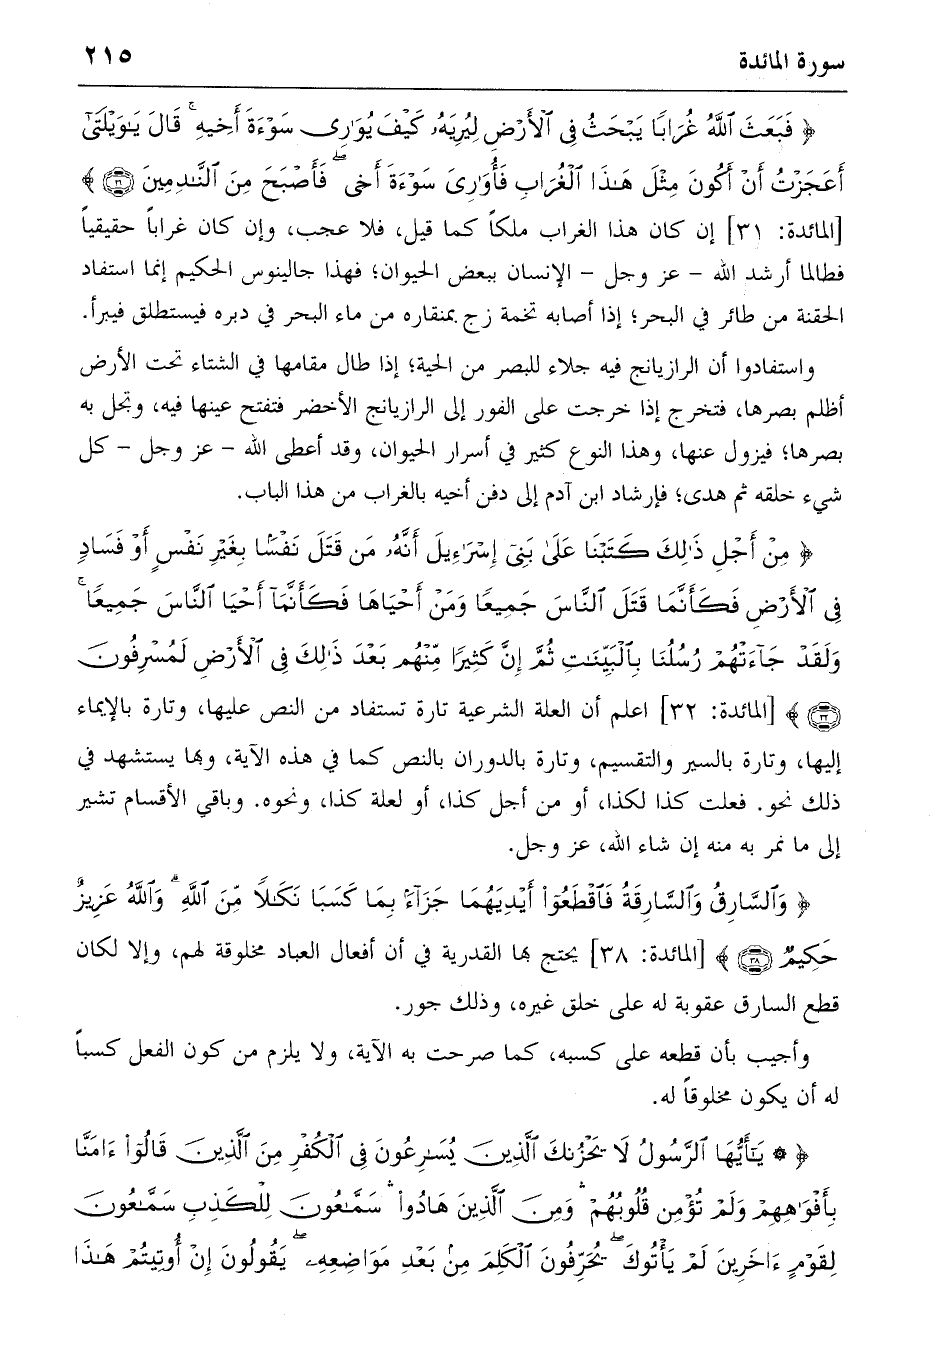 سورة المائدة ٢١٥
﴿ فَبَعَثَ ٱللَّهُ غُرَابًا يَبْحَثُ فِى ٱلْأَرْضِ لِيُرِيَهُۥ كَيْفَ يُوَٰرِى سَوْءَةَ أَخِيهِ ۚ قَالَ يَٰوَيْلَتَىٰٓ
أَعَجَزْتُ أَنْ أَكُونَ مِثْلَ هَٰذَا ٱلْغُرَابِ فَأُوَٰرِىَ سَوْءَةَ أَخِى ۖ فَأَصْبَحَ مِنَ ٱلنَّٰدِمِينَ ٣١ ﴾
[المائدة: ٣١] إن كان هذا الغراب ملكاً كما قيل، فلا عجب، وإن كان غراباً حقيقياً
فطالما أرشد الله – عز وجل – الإنسان ببعض الحيوان؛ فهذا جالينوس الحكيم إنما استفاد
الحقنة من طائر في البحر؛ إذا أصابه تخمة زج بمنقاره من ماء البحر في دبره فيستطلق فيبرأ.
واستفادوا أن الرازيانج فيه جلاء للبصر من الحية؛ إذا طال مقامها في الشتاء تحت الأرض
أظلم بصرها، فتخرج إذا خرجت على الفور إلى الرازيانج الأخضر فتفتح عينها فيه، وتحل به
بصرها؛ فيزول عنها، وهذا النوع كثير في أسرار الحيوان، وقد أعطى الله – عز وجل – كل
شيء خلقه ثم هدى؛ فإرشاد ابن آدم إلى دفن أخيه بالغراب من هذا الباب.
﴿ مِنْ أَجْلِ ذَٰلِكَ كَتَبْنَا عَلَىٰ بَنِىٓ إِسْرَٰٓءِيلَ أَنَّهُۥ مَن قَتَلَ نَفْسًۢا بِغَيْرِ نَفْسٍ أَوْ فَسَادٍ
فِى ٱلْأَرْضِ فَكَأَنَّمَا قَتَلَ ٱلنَّاسَ جَمِيعًا وَمَنْ أَحْيَاهَا فَكَأَنَّمَآ أَحْيَا ٱلنَّاسَ جَمِيعًا ۚ
وَلَقَدْ جَآءَتْهُمْ رُسُلُنَا بِٱلْبَيِّنَٰتِ ثُمَّ إِنَّ كَثِيرًا مِّنْهُم بَعْدَ ذَٰلِكَ فِى ٱلْأَرْضِ لَمُسْرِفُونَ
٣٢ ﴾ [المائدة: ٣٢] اعلم أن العلة الشرعية تارة تستفاد من النص عليها، وتارة بالإيماء
إليها، وتارة بالسير والتقسيم، وتارة بالدوران بالنص كما في هذه الآية، وبها يستشهد في
ذلك نحو. فعلت كذا لكذا، أو من أجل كذا، أو لعلة كذا، ونحوه. وباقي الأقسام تشير
إلى ما نمر به منه إن شاء الله، عز وجل.
﴿ وَٱلسَّارِقُ وَٱلسَّارِقَةُ فَٱقْطَعُوٓا۟ أَيْدِيَهُمَا جَزَآءًۢ بِمَا كَسَبَا نَكَٰلًا مِّنَ ٱللَّهِ ۗ وَٱللَّهُ عَزِيزٌ
حَكِيمٌ ٣٨ ﴾ [المائدة: ٣٨] يحتج بها القدرية في أن أفعال العباد مخلوقة لهم، وإلا لكان
قطع السارق عقوبة له على خلق غيره، وذلك جور.
وأجيب بأن قطعه على كسبه، كما صرحت به الآية، ولا يلزم من كون الفعل كسباً
له أن يكون مخلوقاً له.
﴿ ۞ يَٰٓأَيُّهَا ٱلرَّسُولُ لَا يَحْزُنكَ ٱلَّذِينَ يُسَٰرِعُونَ فِى ٱلْكُفْرِ مِنَ ٱلَّذِينَ قَالُوٓا۟ ءَامَنَّا
بِأَفْوَٰهِهِمْ وَلَمْ تُؤْمِن قُلُوبُهُمْ ۛ وَمِنَ ٱلَّذِينَ هَادُوا۟ ۛ سَمَّٰعُونَ لِلْكَذِبِ سَمَّٰعُونَ
لِقَوْمٍ ءَاخَرِينَ لَمْ يَأْتُوكَ ۖ يُحَرِّفُونَ ٱلْكَلِمَ مِنۢ بَعْدِ مَوَاضِعِهِۦ ۖ يَقُولُونَ إِنْ أُوتِيتُمْ هَٰذَا